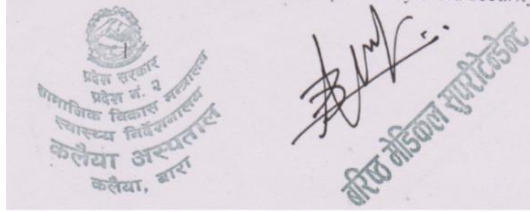 प्रदेश सरकार
प्रदेश नं. २
सामाजिक विकास मन्त्रालय
स्वास्थ्य निर्देशनालय
कलैया अस्पताल
कलैया, बारा
बरिष्ठ मेडिकल सुपरीटेन्डेन्ट